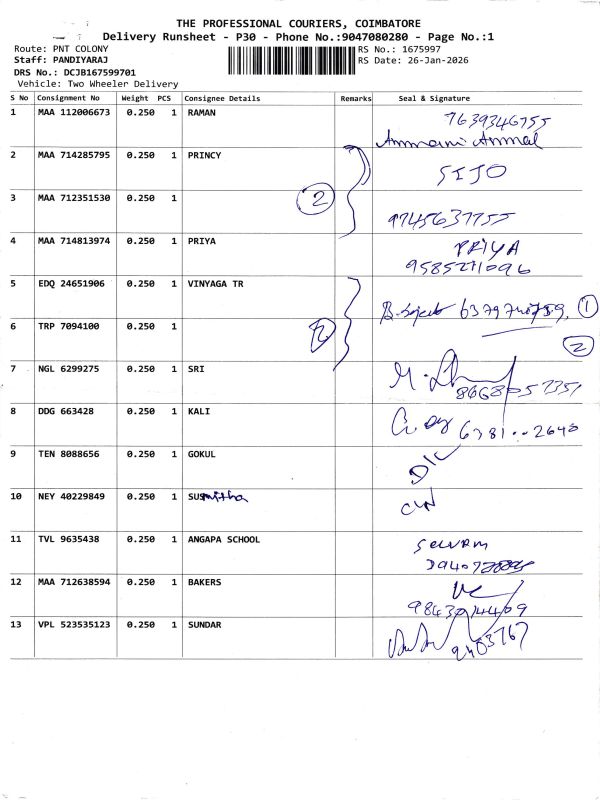 THE PROFESSIONAL COURIERS, COIMBATORE
Delivery Runsheet - P30 - Phone No.:9047080280 - Page No.:1
Route: PNT COLONY
RS No.: 1675997
Staff: PANDIYARAJ
RS Date: 26-Jan-2026
DRS No.: DCJB167599701
Vehicle: Two Wheeler Delivery
S No Consignment No Weight PCS Consignee Details Remarks Seal & Signature
1 MAA 112006673 0.250 1 RAMAN 7639346755
Ammani Ammal
2 MAA 714285795 0.250 1 PRINCY SIJO
2
3 MAA 712351530 0.250 1 9745637755
4 MAA 714813974 0.250 1 PRIYA PRIYA
9585271096
5 EDQ 24651906 0.250 1 VINYAGA TR 1
6 TRP 7094100 0.250 1 2
7 NGL 6299275 0.250 1 SRI
8 DDG 663428 0.250 1 KALI
9 TEN 8088656 0.250 1 GOKUL D/L
10 NEY 40229849 0.250 1 SUSmitha
11 TVL 9635438 0.250 1 ANGAPA SCHOOL selvam
12 MAA 712638594 0.250 1 BAKERS
13 VPL 523535123 0.250 1 SUNDAR